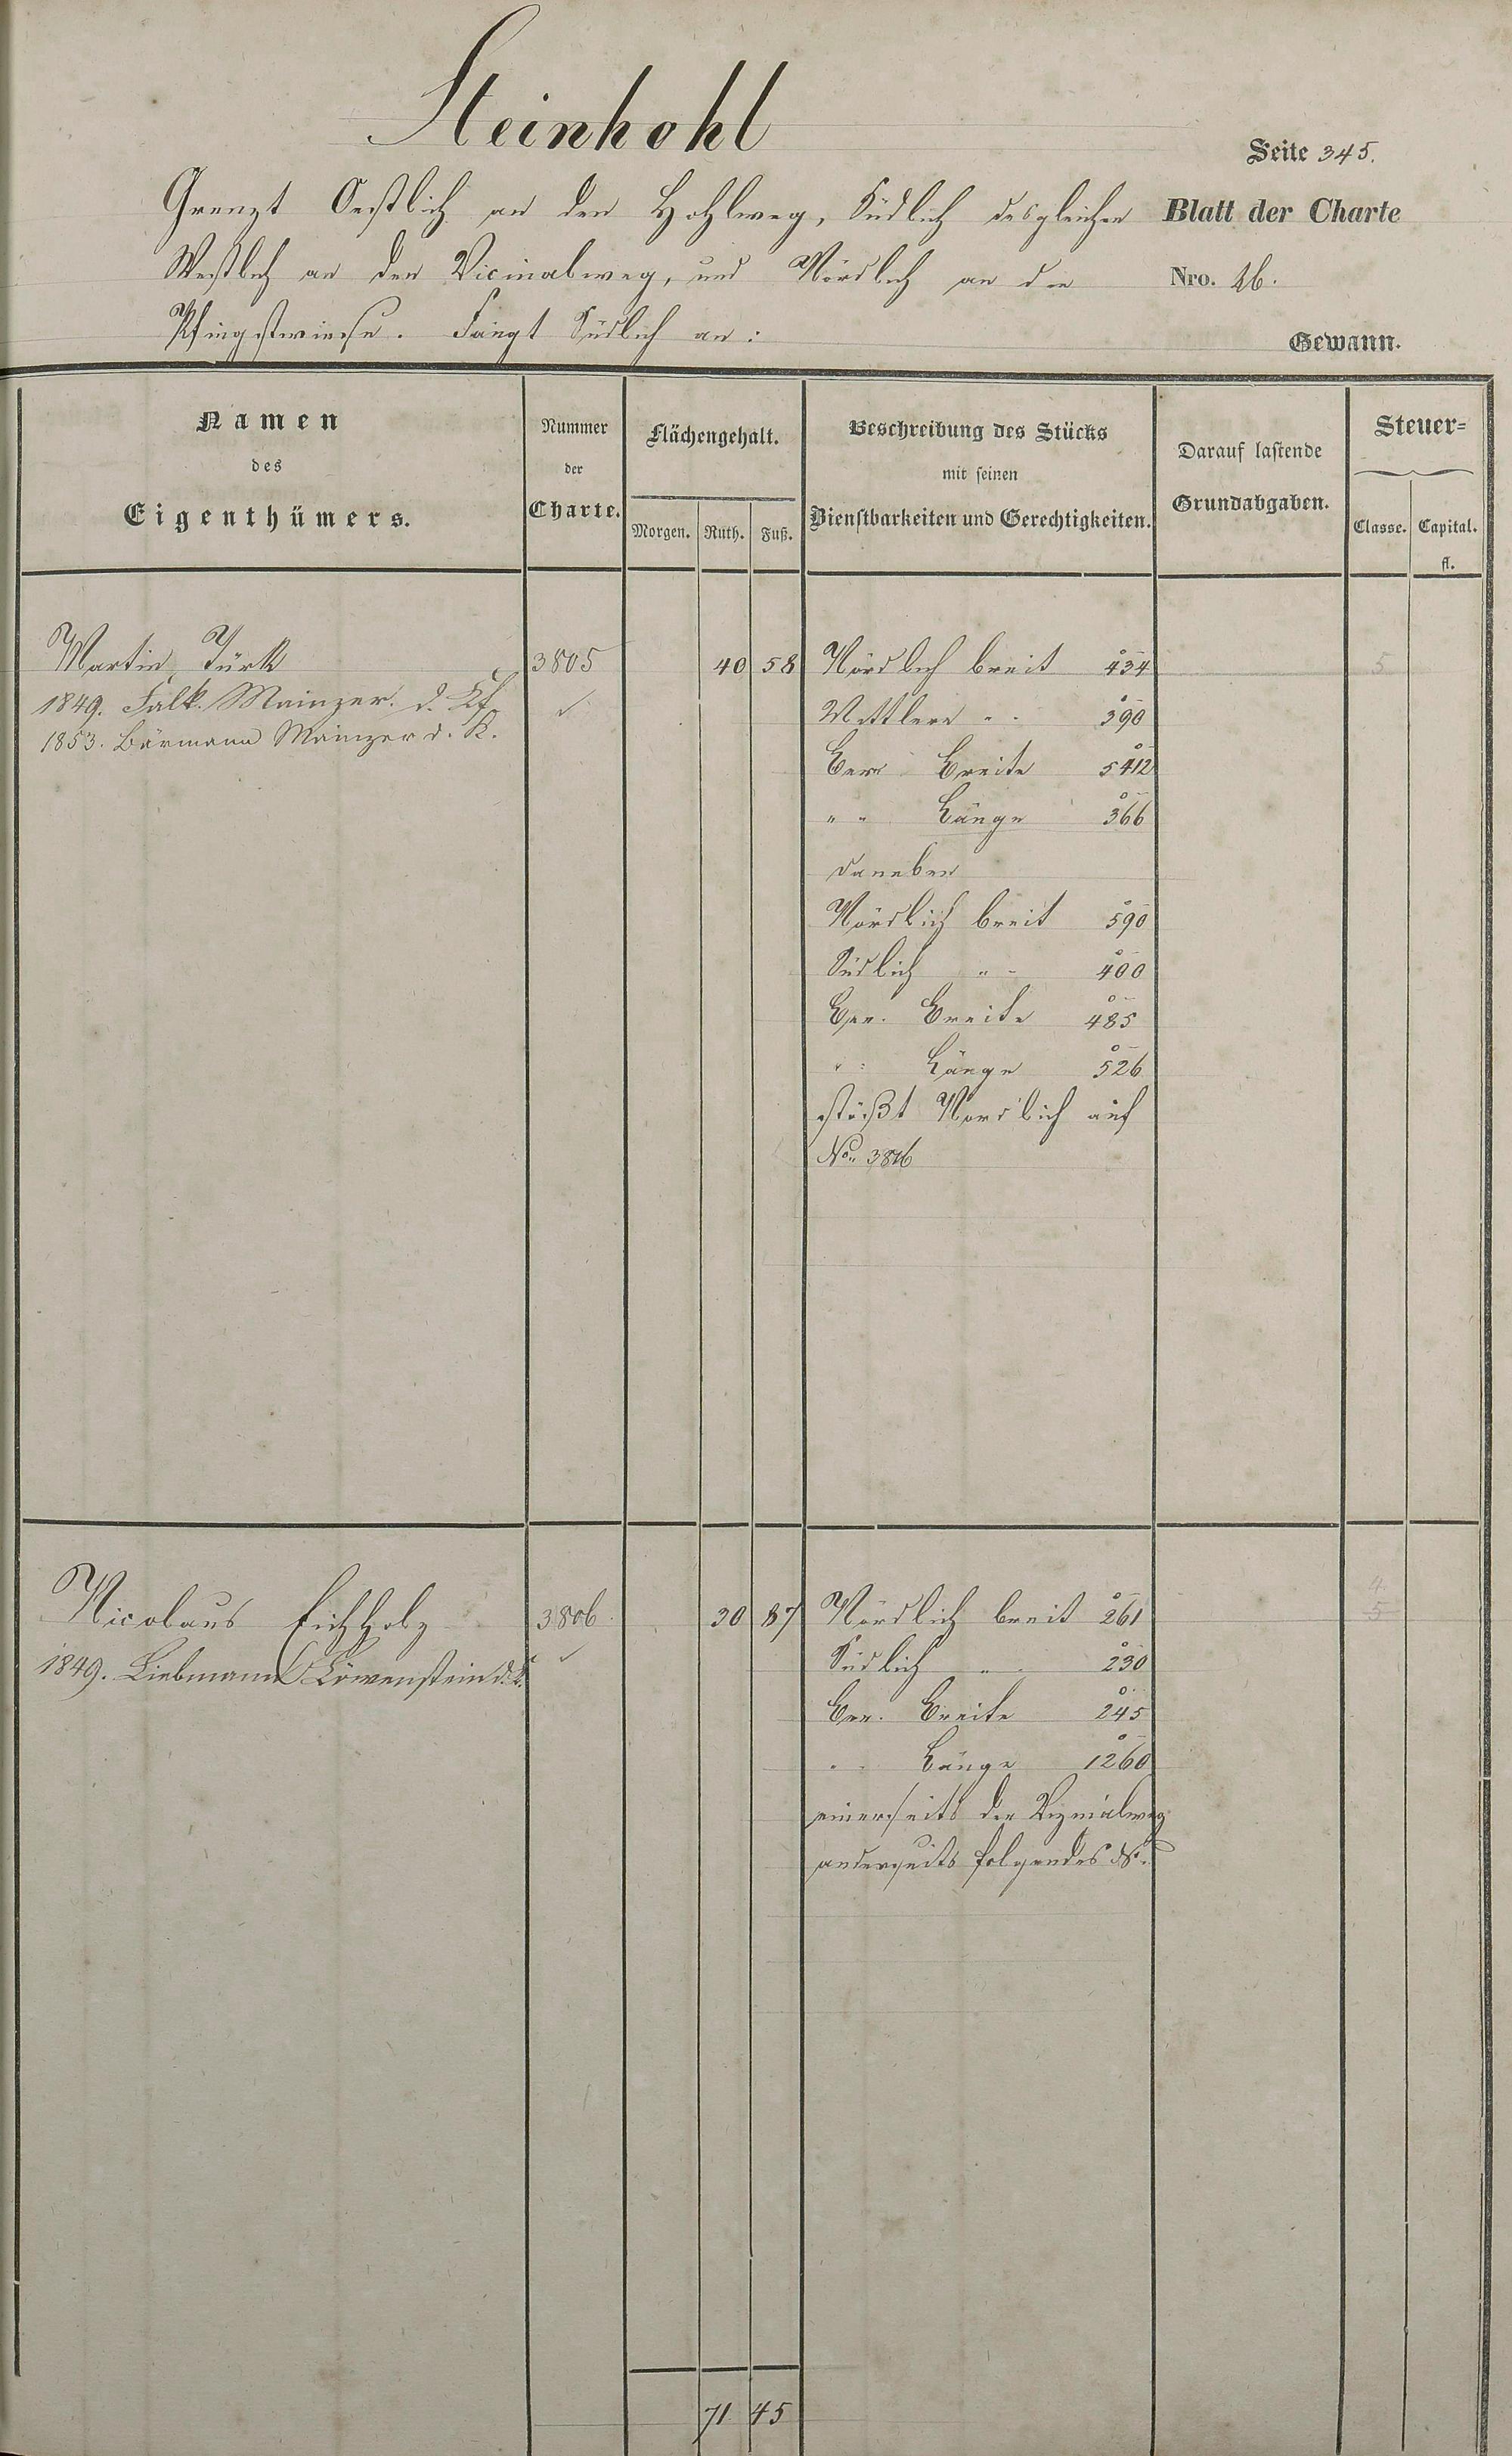 Steinhohl
Seite 345.
Grenzt Oestlich an den Hohlweg, Südlich desgleichen
Blatt der Charte
Westlich an den Vicinalweg, und Nördlich an die
Nro. 26.
Pfingstwiese. Fängt Südlich an:
Gewann.
Namen
des
Eigenthümers.
Nummer
der
Charte.
Flächengehalt.
Morgen. Ruth. Fuß.
Beschreibung des Stücks
mit seinen
Dienstbarkeiten und Gerechtigkeiten.
Darauf lastende
Grundabgaben.
Steuer=
Classe. Capital.
fl.
Martin Türk 3805 40 58 Nördlich breit 434 5
1849. Falk. Mainzer. d. Kf
Mittlere " 390
1853. Bärmann Mainzer d. K.
Ber. Breite 5412
" " Länge 366
daneben
Nördlich breit 590
Südlich " 400
Ber. Breite 485
" Länge 526
stößt Nordlich auf
No. 3816
Nicolaus Eichholz 3806 30 87 Nördlich breit 261 4. 5
1849. Liebmann Löwenstein d. K.
Südlich " 230
Ber. Breite 245
" Länge 1260
einerseits der Vizinialweg
anderseits folgendes St.
71 45